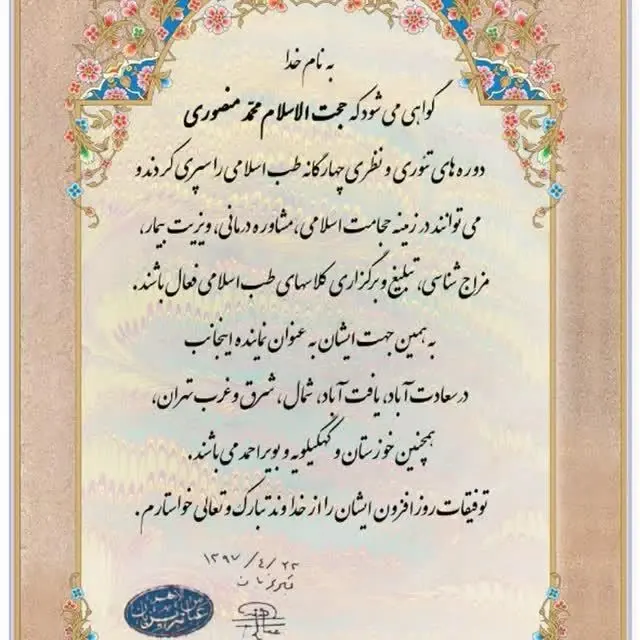 به نام خدا
گواهی می شود که حجت الاسلام محمّد منصوری
دوره های تئوری و نظری چهارگانه طب اسلامی را سپری کردند و
می توانند در زمینه حجامت اسلامی، مشاوره درمانی، ویزیت بیمار،
مزاج شناسی، تبلیغ و برگزاری کلاسهای طب اسلامی فعال باشند.
به همین جهت ایشان به عنوان نماینده اینجانب
در سعادت آباد، یافت آباد، شمال، شرق و غرب تهران،
همچنین خوزستان و کهگیلویه و بویراحمد می باشند.
توفیقات روز افزون ایشان را از خداوند تبارک و تعالی خواستارم.
۱۳۹۷/۴/۲۳